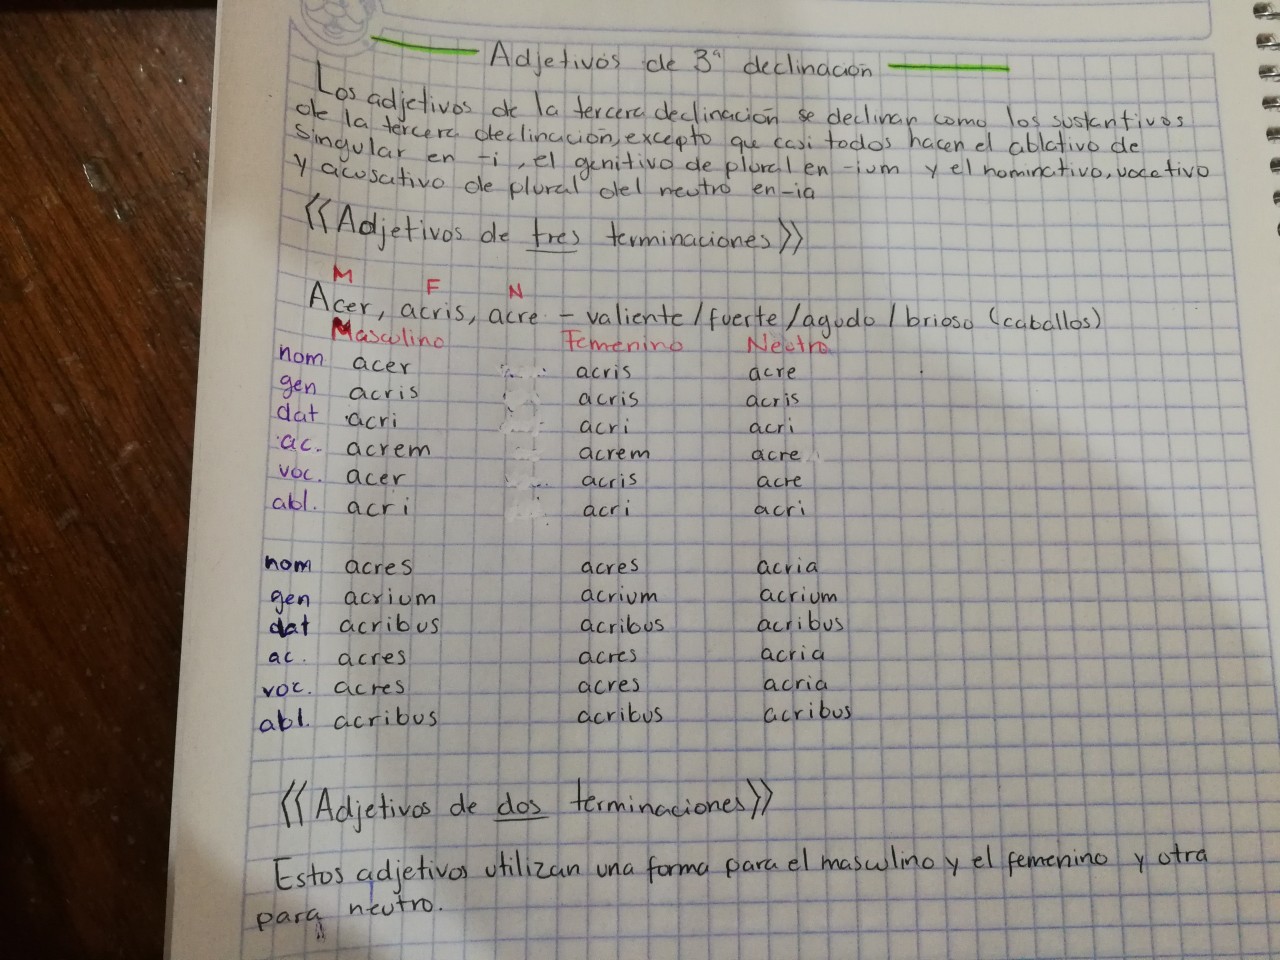 Adjetivos de 3ª declinación
Los adjetivos de la tercera declinación se declinan como los sustantivos
de la tercera declinación, excepto que casi todos hacen el ablativo de
singular en -i, el genitivo de plural en -ium y el nominativo, vocativo
y acusativo de plural del neutro en -ia
⟪Adjetivos de tres terminaciones⟫
M F N
Acer, acris, acre - valiente/fuerte/agudo/brioso (caballos)
Masculino Femenino Neutro
nom acer acris acre
gen acris acris acris
dat acri acri acri
ac. acrem acrem acre
voc. acer acris acre
abl. acri acri acri
nom acres acres acria
gen acrium acrium acrium
dat acribus acribus acribus
ac. acres acres acria
voc. acres acres acria
abl. acribus acribus acribus
⟪Adjetivos de dos terminaciones⟫
Estos adjetivos utilizan una forma para el masculino y el femenino y otra
para neutro.